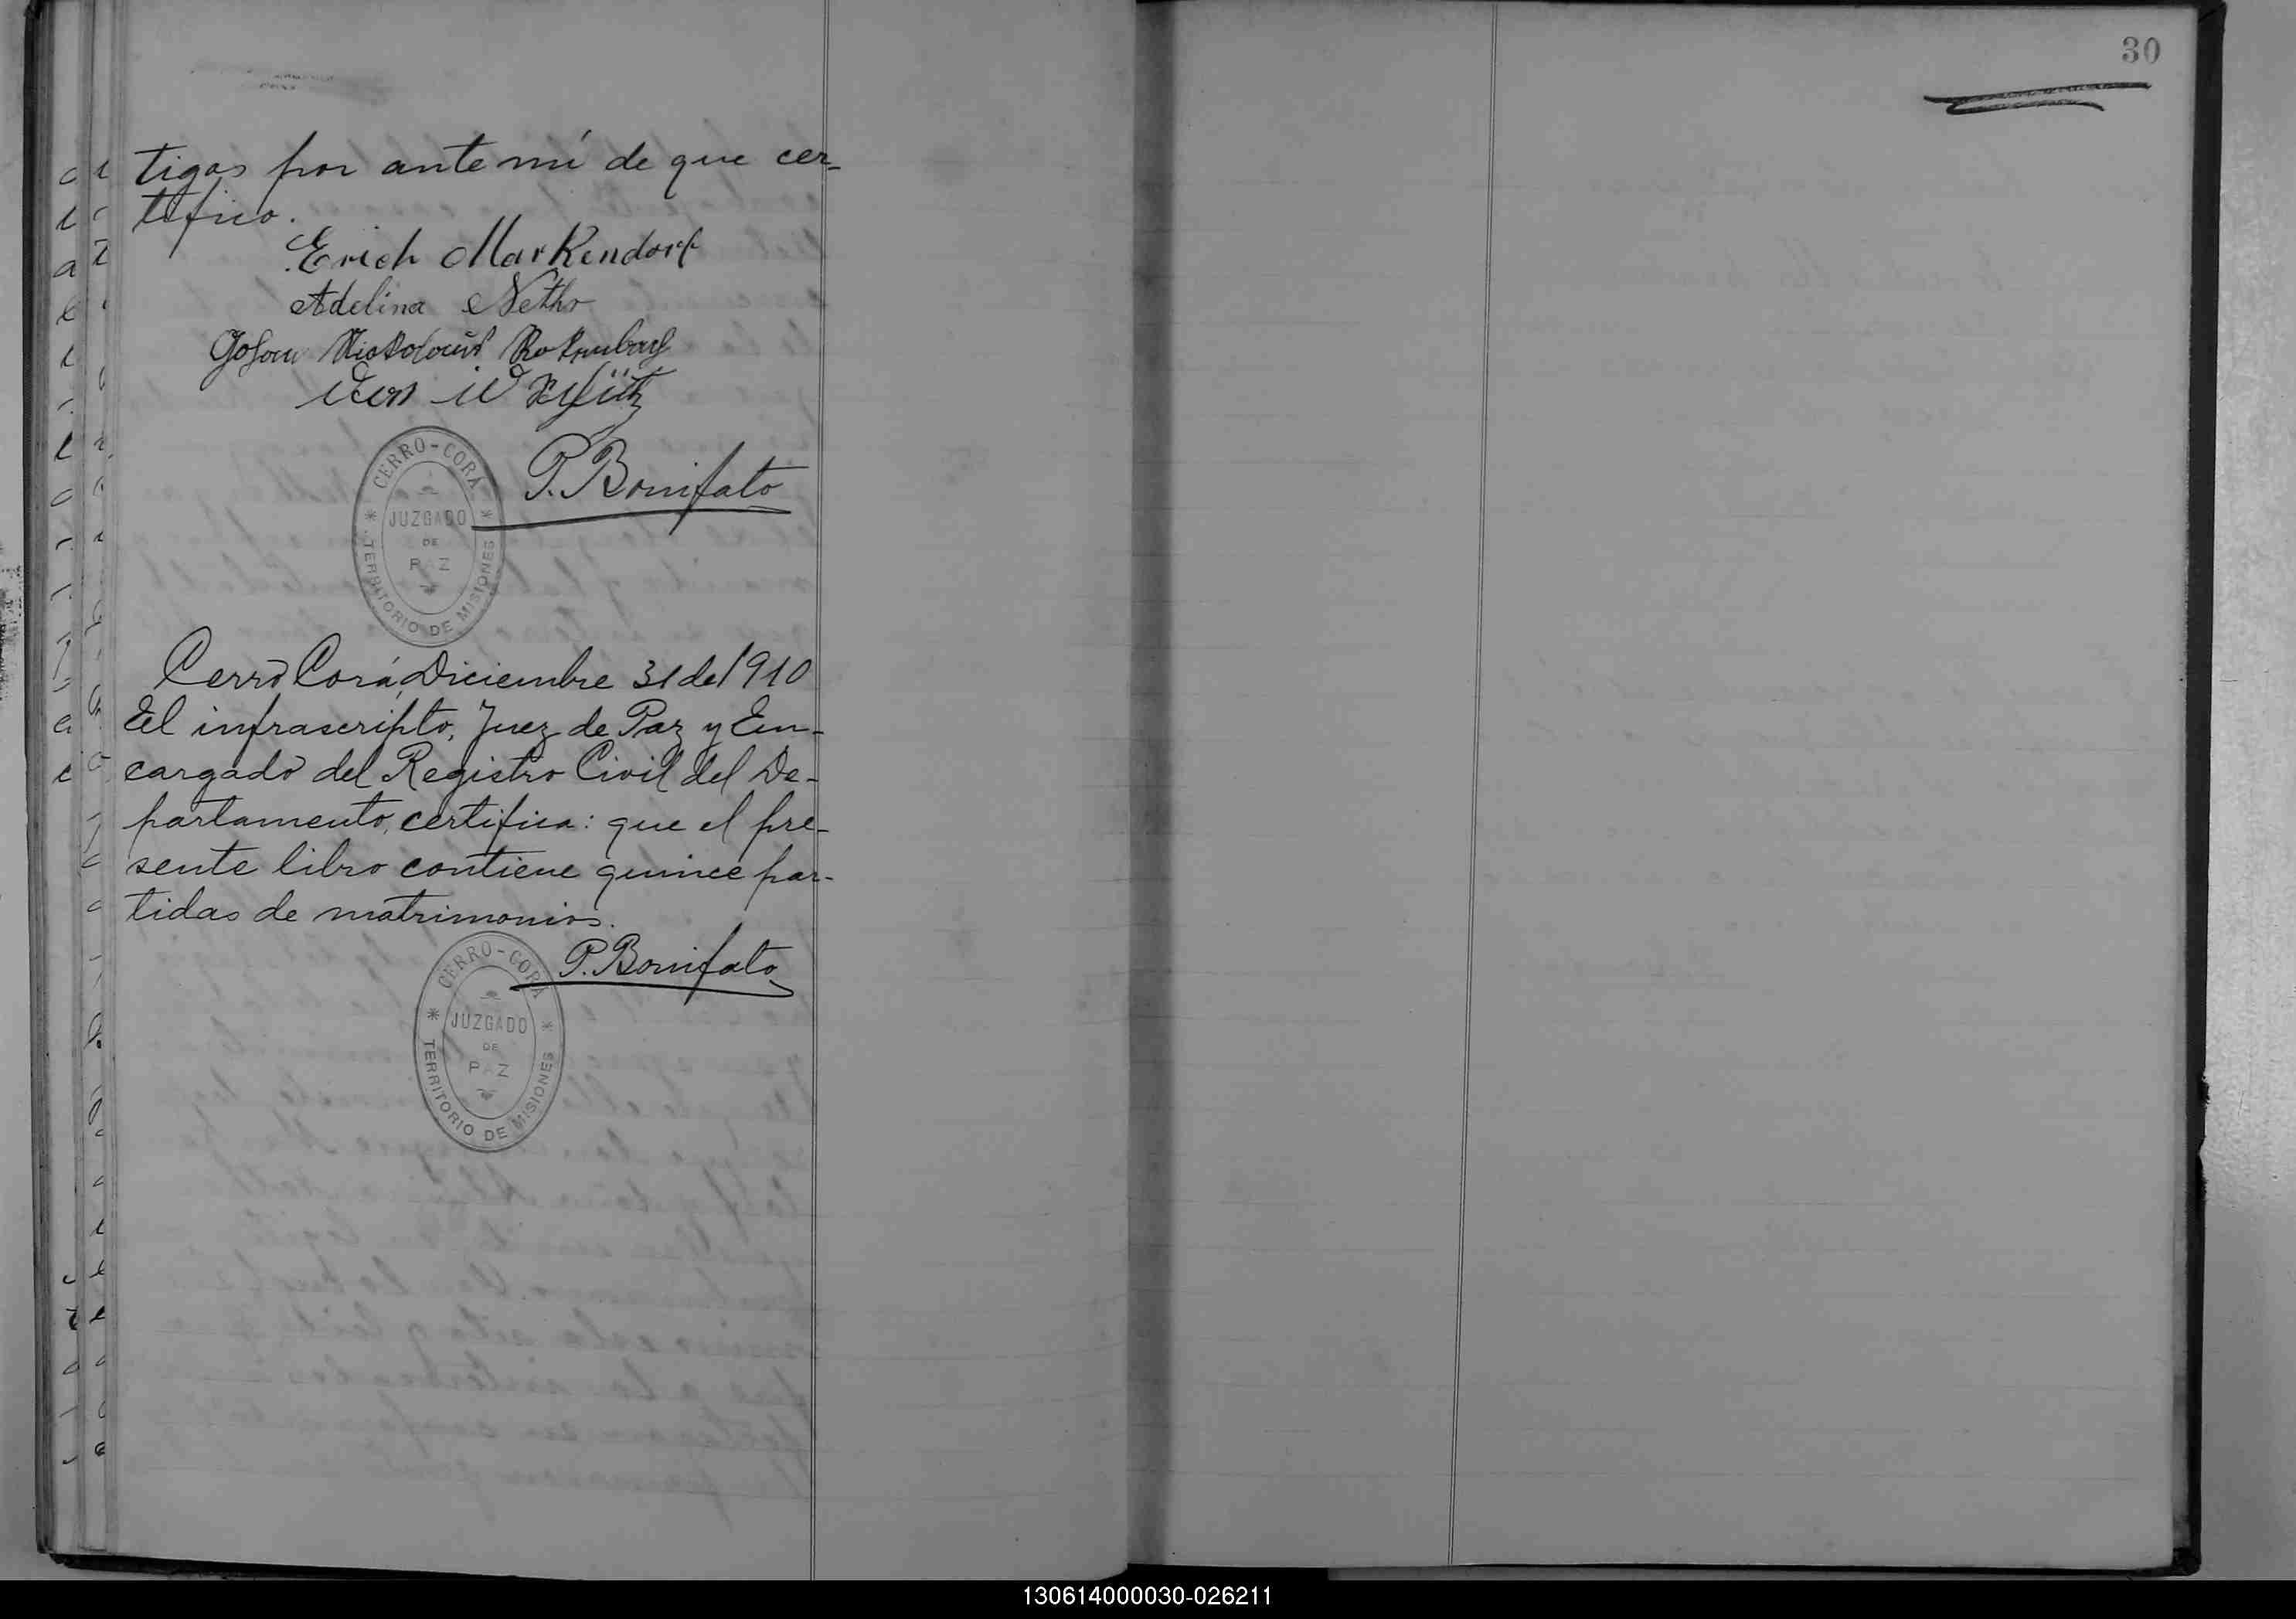 tigos por ante mí de que cer-
tifico.
Erich Markendorf
Adelina Netho
P. Bonifato
CERRO-CORÁ
JUZGADO
DE
PAZ
TERRITORIO DE MISIONES
Cerro Corá, Diciembre 31 de 1910
El infrascripto, Juez de Paz y En-
cargado del Registro Civil del De-
partamento, certifica: que el pre-
sente libro contiene quince par-
tidas de matrimonios.
P. Bonifato
CERRO-CORÁ
JUZGADO
DE
PAZ
TERRITORIO DE MISIONES
30
130614000030-026211